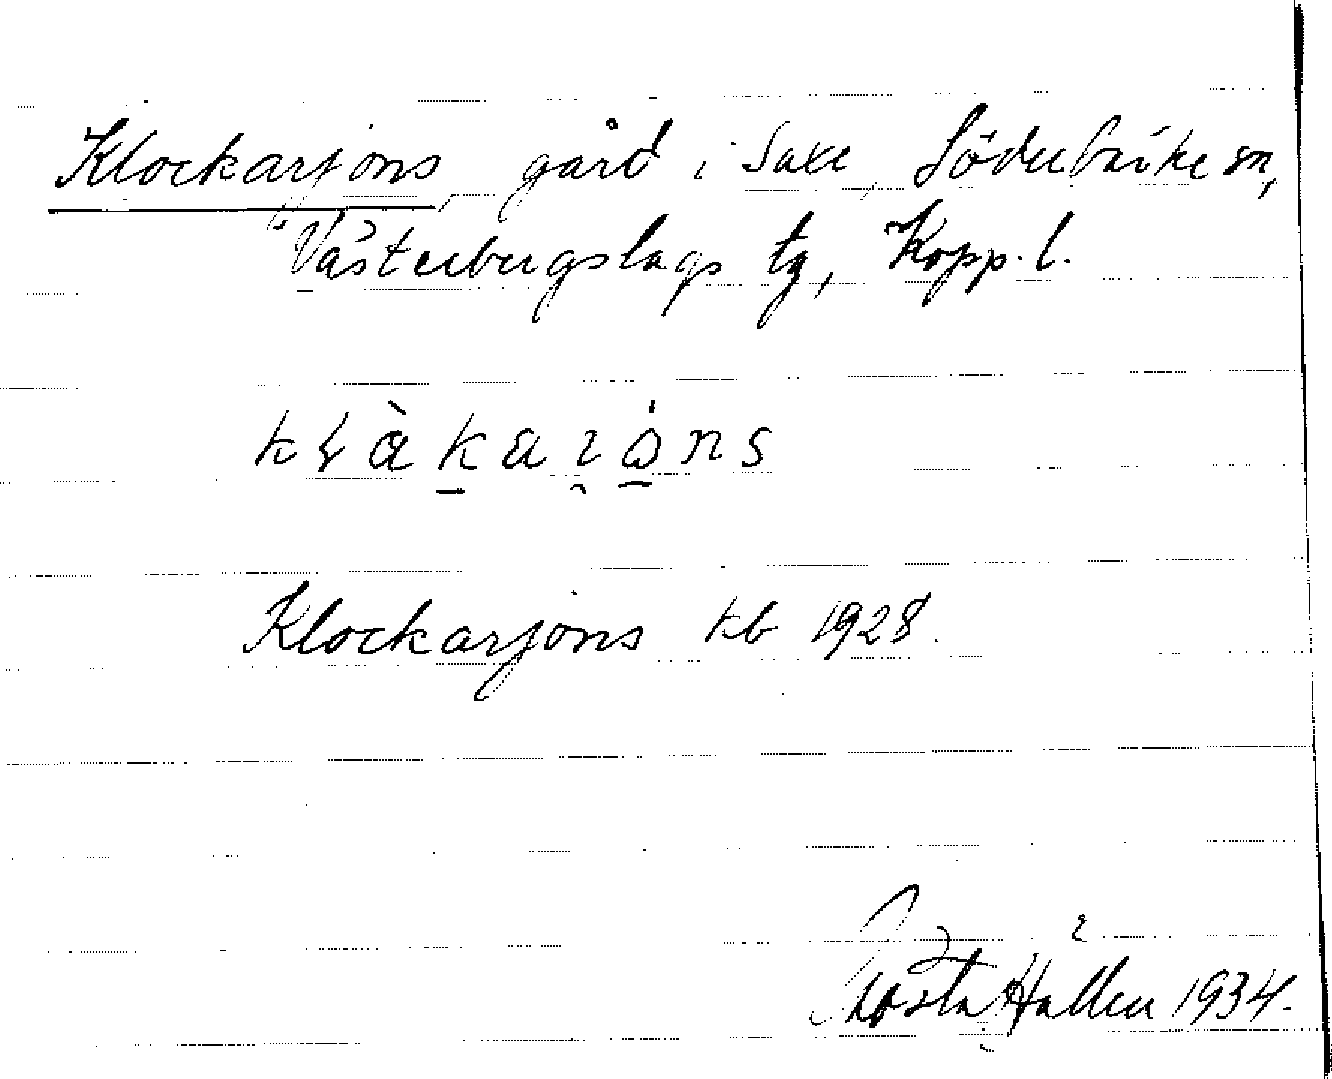 Klockarjons, gård i Saxe, Söderbärke sn,
Västerbergslags tg, Kopp. l.
Klockarjons kb 1928.
Gösta Hallen 1934.